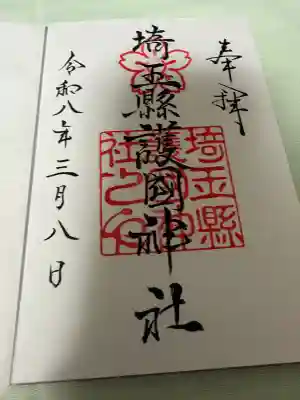 奉拝
埼玉縣護國神社
令和八年三月八日
埼玉縣
社之印